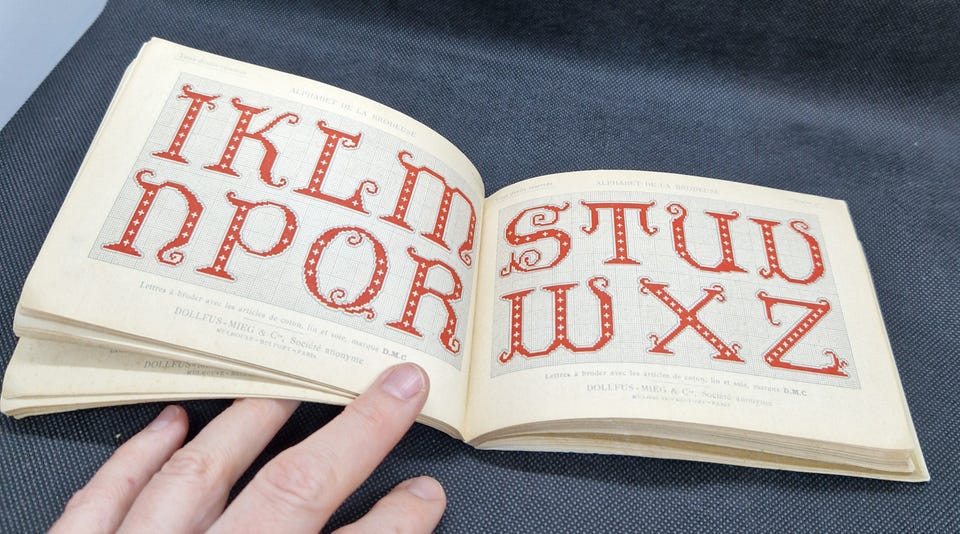 ALPHABET DE LA BRODEUSE
I K L M
N P Q R
Lettres à broder avec les articles de coton, lin et soie, marque D.M.C
DOLLFUS-MIEG & Cie, Société anonyme
MULHOUSE-BELFORT-PARIS
DOLLFUS-MIEG &
MULHOUSE-BELFORT-PARIS
ALPHABET DE LA BRODEUSE
S T U V
W X Z
Lettres à broder avec les articles de coton, lin et soie, marque D.M.C
DOLLFUS-MIEG & Cie, Société anonyme
MULHOUSE-BELFORT-PARIS